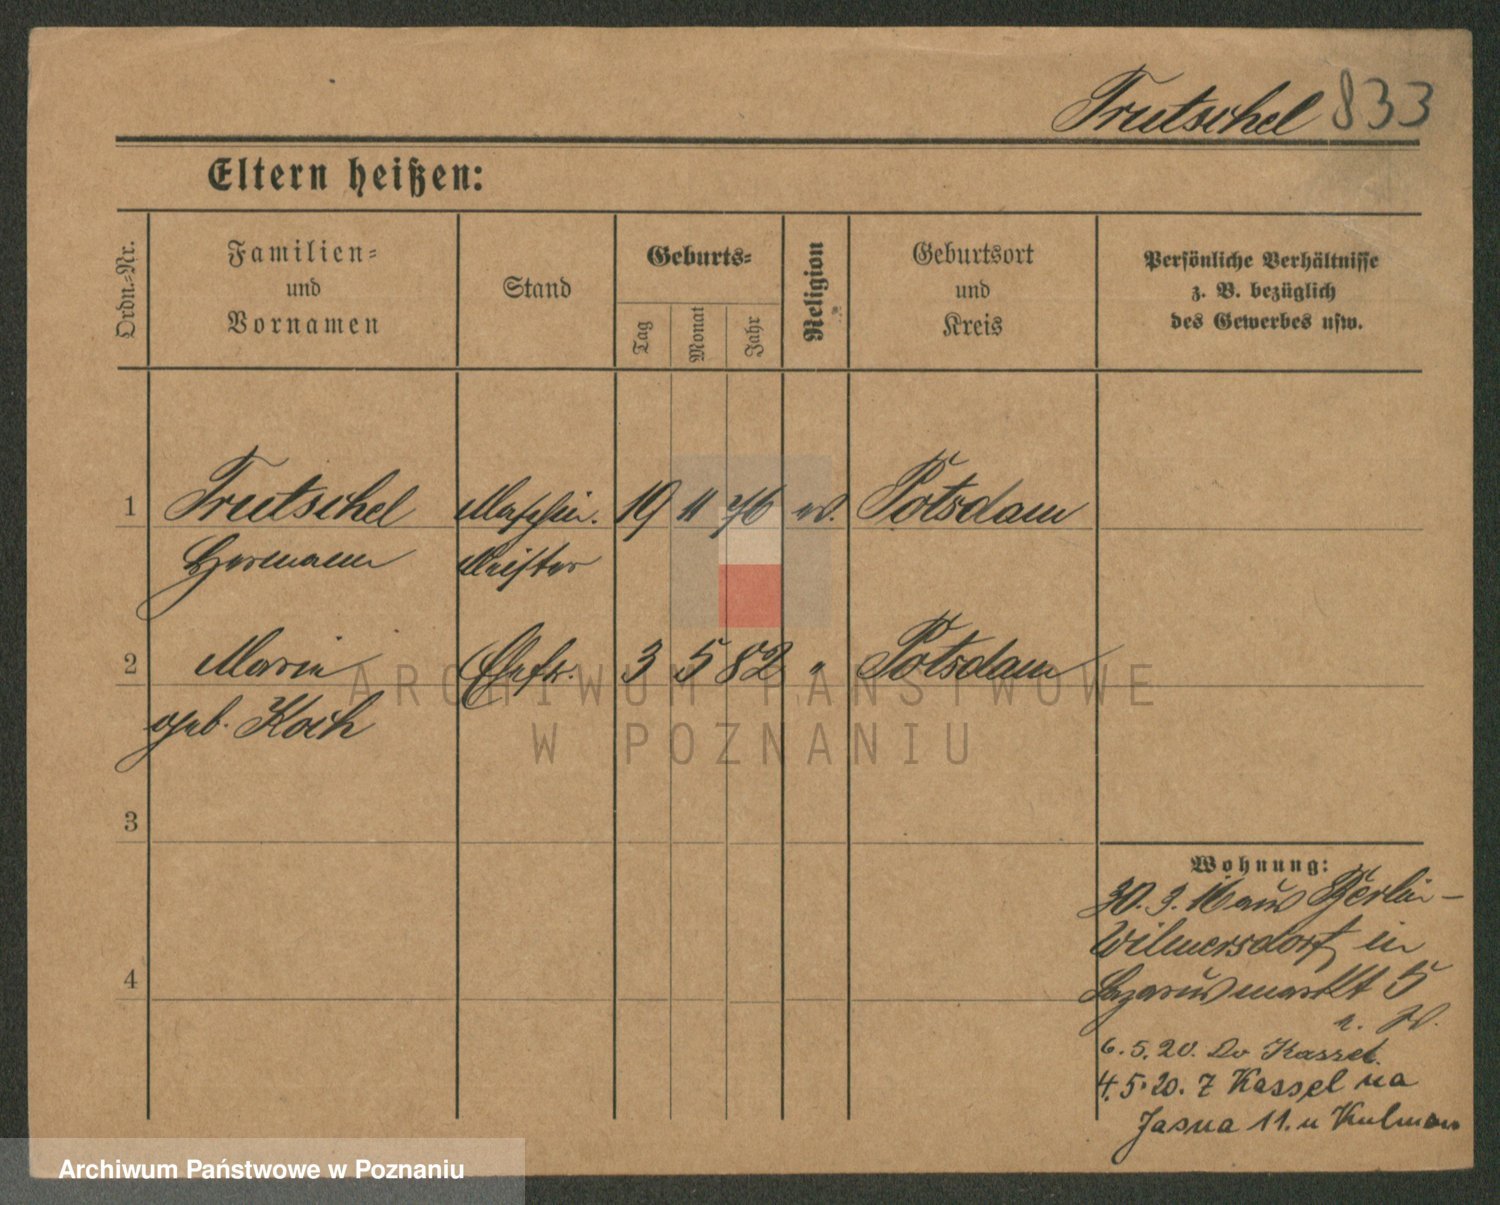 Trutschel 833
Eltern heißen:
Ordn.-Nr.
Familien-
und
Vornamen
Stand
Geburts-
Tag
Monat
Jahr
Religion
Geburtsort
und
Kreis
Persönliche Verhältnisse
z. B. bezüglich
des Gewerbes usw.
1 Trutschel Maschin. 19 11 76 ev. Potsdam
Hermann Meister
2 Marie Ehefr. 3 5 82 " Potsdam
geb. Koch
3
4
Wohnung:
30. 3. 16 aus Berlin-
Wilmersdorf in
Lazarusmarkt 5
6. 5. 20. Do Kassel.
4. 5. 20. Z Kassel na
Jasna 11. u Kulman
ARCHIWUM PAŃSTWOWE
W POZNANIU
Archiwum Państwowe w Poznaniu